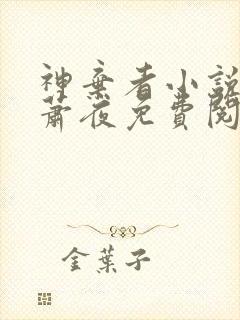 神棄者小說
蕭夜免費閱
金葉子